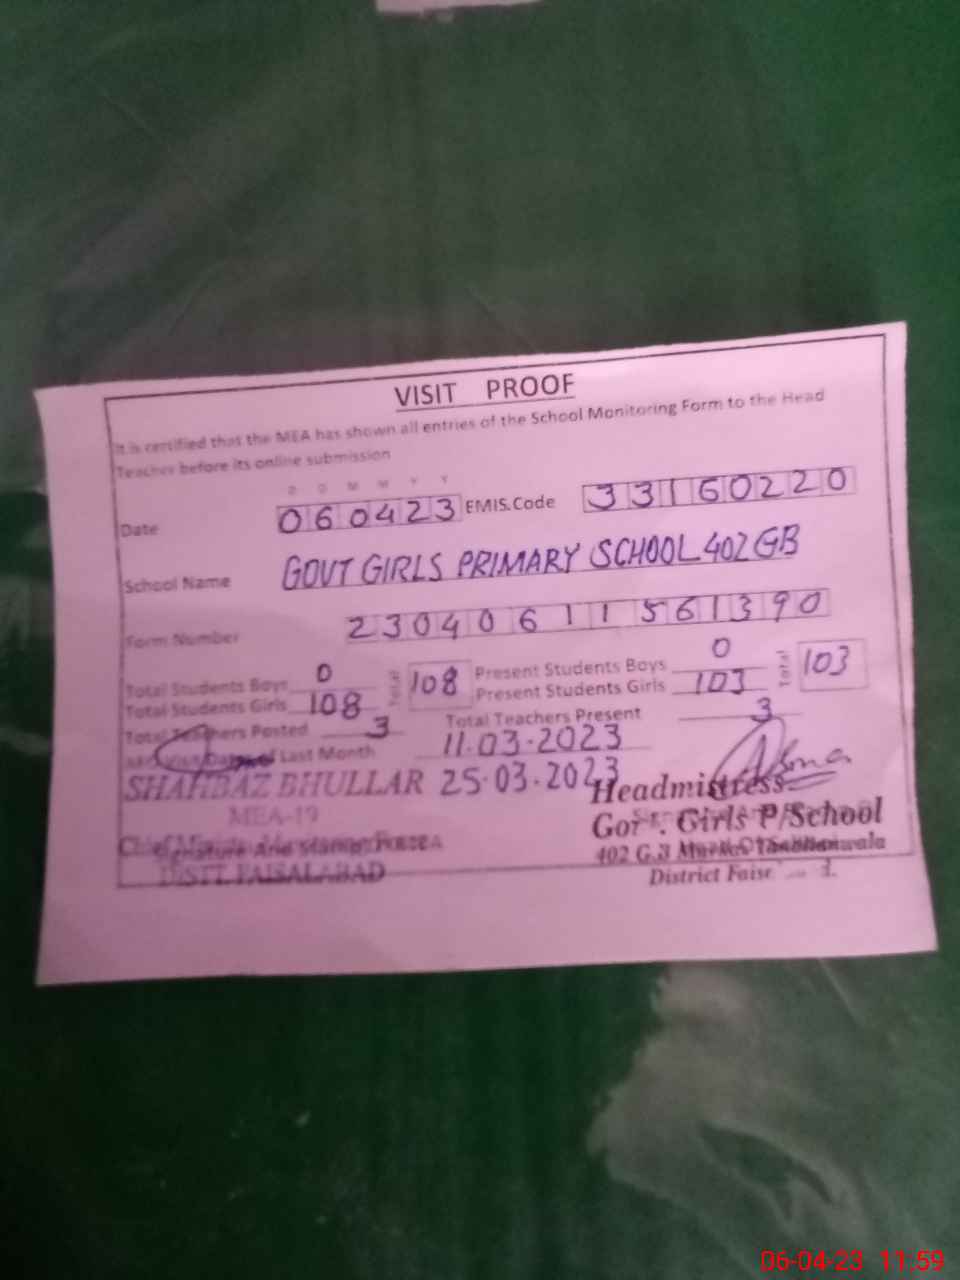 VISIT PROOF
It is certified that the MEA has shown all entries of the School Monitoring Form to the Head
Teacher before its online submission
D D M M Y Y
Date 060423 EMIS.Code 33160220
School Name GOVT GIRLS PRIMARY SCHOOL 402 GB
Form Number 23040611561390
Total Students Boys 0 Present Students Boys 0
Total Students Girls 108 Total 108 Present Students Girls 103 Total 103
Total Teachers Posted 3 Total Teachers Present 3
Visit Dates of Last Month 11.03.2023
SHAHBAZ BHULLAR 25.03.2023 Headmistress
MEA-19 Girls P/School
Signature And Stamp 402 G.B
DISTT. FAISALABAD District
06-04-23 11:59